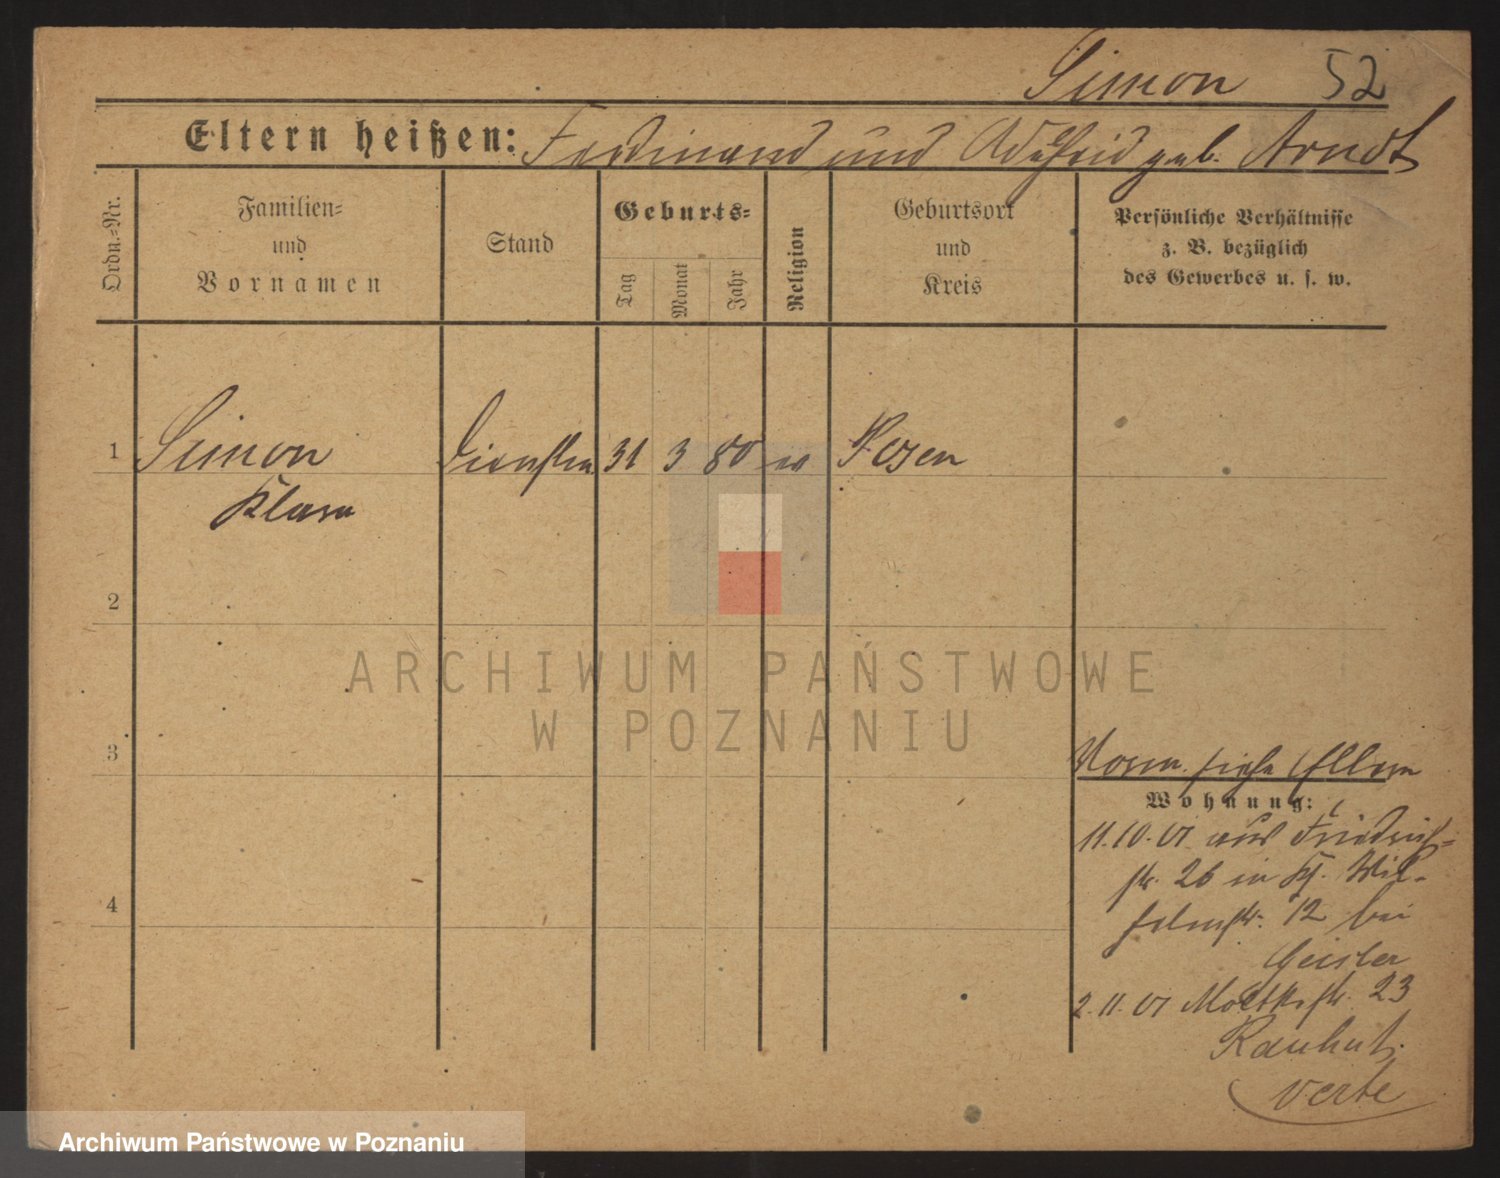 Simon 52
Eltern heißen: Ferdinand und Adelheid geb. Arndt
Ordn.-Nr.
Familien-
und
Vornamen
Stand
Geburts-
Tag
Monat
Jahr
Religion
Geburtsort
und
Kreis
Persönliche Verhältnisse
z. B. bezüglich
des Gewerbes u. s. w.
1 Simon 31 3 80 Posen
Klara
2
ARCHIWUM PAŃSTWOWE
W POZNANIU
3
siehe Eltern
Wohnung:
11.10.01 aus Friedrich-
str. 26 in Kl. Wil-
helmstr. 12 bei
Geisler
4
2.11.01 Moltkestr. 23
Rauhut
verte
Archiwum Państwowe w Poznaniu